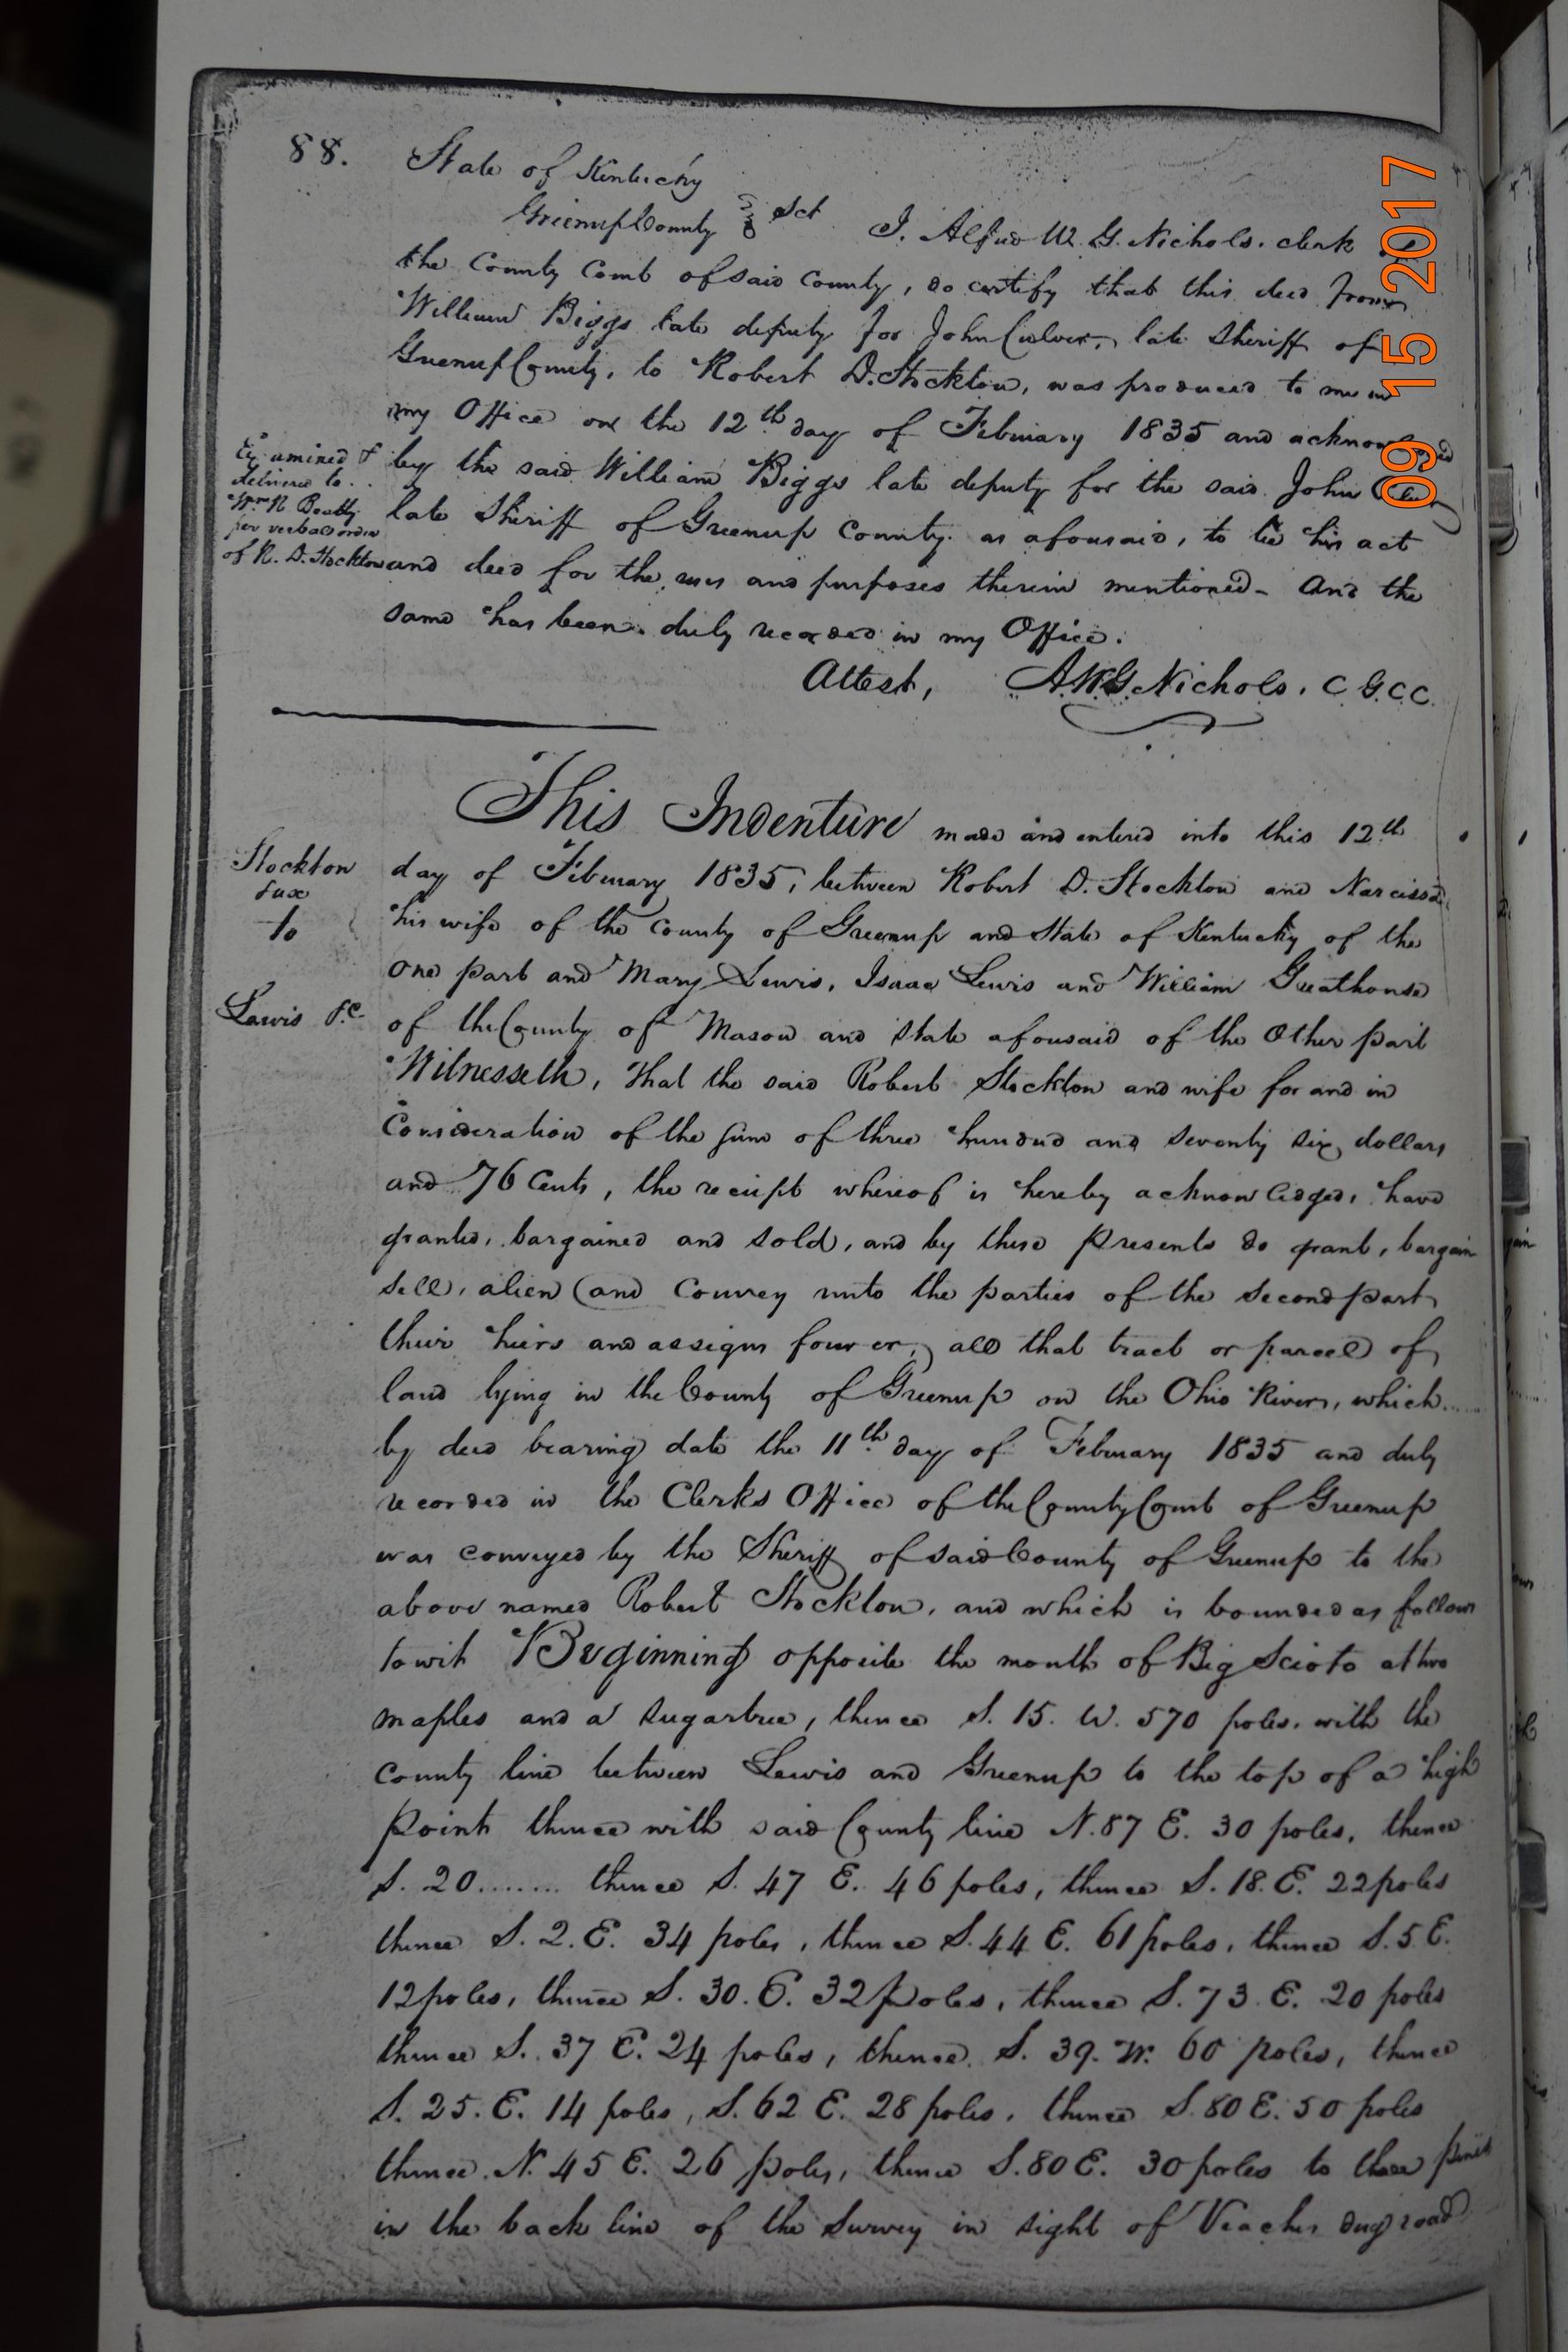 88.
State of Kentucky
Greenup County Sct I. Alfred W. G. Nichols. clerk
the County Court of said County, do certify that this deed from
William Biggs late deputy for John Culver, late Sheriff of
Greenup County, to Robert D. Stockton, was produced to me in
my Office on the 12th day of February 1835 and acknowledged
by the said William Biggs late deputy for the said John
late Sheriff of Greenup County. as aforesaid, to be his act
and deed for the uses and purposes therein mentioned - And the
same has been duly recorded in my Office.
Attest, A.W.G. Nichols, C G.C.C.
Examined &
delivered to..
Wm N Beatty
per verbal order
of R. D. Stockton
This Indenture made and entered into this 12th
day of February 1835, between Robert D. Stockton and Narcissa
his wife of the County of Greenup and State of Kentucky of the
one part and Mary Lewis, Isaac Lewis and William Greathouse
of the County of Mason and State aforesaid of the Other part
Witnesseth, That the said Robert Stockton and wife for and in
Consideration of the sum of three hundred and seventy six dollars
and 76 Cents, the receipt whereof is hereby acknowledged, have
granted, bargained and sold, and by these Presents do grant, bargain
sell, alien and Convey unto the parties of the second part,
their heirs and assigns forever, all that tract or parcel of
land lying in the County of Greenup on the Ohio River, which....
by deed bearing date the 11th day of February 1835 and duly
recorded in the Clerks Office of the County Court of Greenup
was conveyed by the Sheriff of said County of Greenup to the
above named Robert Stockton, and which is bounded as follows
towit Beginning opposite the mouth of Big Scioto at two
maples and a sugartree, thence S. 15. W. 570 poles. with the
County line between Lewis and Greenup to the top of a high
Point thence with said County line N. 87 E. 30 poles, thence
S. 20........ thence S. 47 E. 46 poles, thence S. 18. E. 22 poles
thence S. 2. E. 34 poles, thence S. 44 E. 61 poles, thence S. 5 E.
12 poles, thence S. 30. E. 32 Poles, thence S. 73. E. 20 poles
thence S. 37 E. 24 poles, thence S. 39. W. 60 poles, thence
S. 25. E. 14 poles, S. 62 E. 28 poles. thence S. 80 E. 50 poles
thence N. 45 E. 26 poles, thence S. 80 E. 30 poles to three pines
in the back line of the Survey in sight of Veaches dug road
Stockton
&ux
to
Lewis &c
09 15 2017